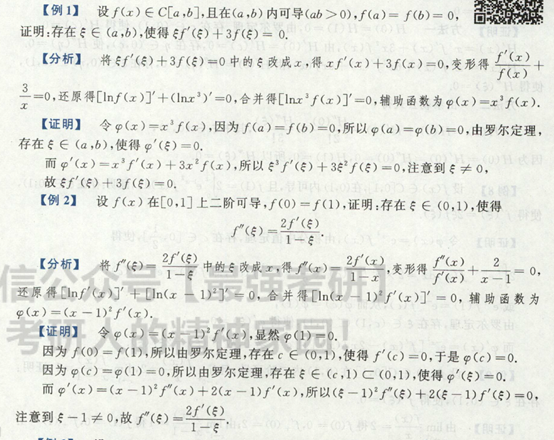 【例1】 设 f(x)∈C[a,b],且在(a,b)内可导(ab>0),f(a)=f(b)=0,
证明:存在 ξ∈(a,b),使得 ξf'(ξ)+3f(ξ)=0.
【分析】 将 ξf'(ξ)+3f(ξ)=0 中的 ξ 改成 x,得 xf'(x)+3f(x)=0,变形得 f'(x)/f(x) +
3/x=0,还原得[lnf(x)]'+(lnx³)'=0,合并得[lnx³f(x)]'=0,辅助函数为 φ(x)=x³f(x).
【证明】 令 φ(x)=x³f(x),因为 f(a)=f(b)=0,所以 φ(a)=φ(b)=0,由罗尔定理,
存在 ξ∈(a,b),使得 φ'(ξ)=0.
而 φ'(x)=x³f'(x)+3x²f(x),所以 ξ³f'(ξ)+3ξ²f(ξ)=0,注意到 ξ≠0,
故 ξf'(ξ)+3f(ξ)=0.
【例2】 设 f(x)在[0,1]上二阶可导,f(0)=f(1),证明:存在 ξ∈(0,1),使得
f''(ξ)=2f'(ξ)/(1-ξ).
【分析】 将 f''(ξ)=2f'(ξ)/(1-ξ) 中的 ξ 改成 x,得 f''(x)=2f'(x)/(1-x),变形得 f''(x)/f'(x)+2/(x-1)=0,
还原得[lnf'(x)]'+[ln(x-1)²]'=0,合并得[ln(x-1)²f'(x)]'=0,辅助函数为
φ(x)=(x-1)²f'(x).
【证明】 令 φ(x)=(x-1)²f'(x),显然 φ(1)=0.
因为 f(0)=f(1),所以由罗尔定理,存在 c∈(0,1),使得 f'(c)=0,于是 φ(c)=0.
因为 φ(c)=φ(1)=0,所以由罗尔定理,存在 ξ∈(c,1)⊂(0,1),使得 φ'(ξ)=0.
而 φ'(x)=(x-1)²f''(x)+2(x-1)f'(x),所以(ξ-1)²f''(ξ)+2(ξ-1)f'(ξ)=0,
注意到 ξ-1≠0,故 f''(ξ)=2f'(ξ)/(1-ξ).